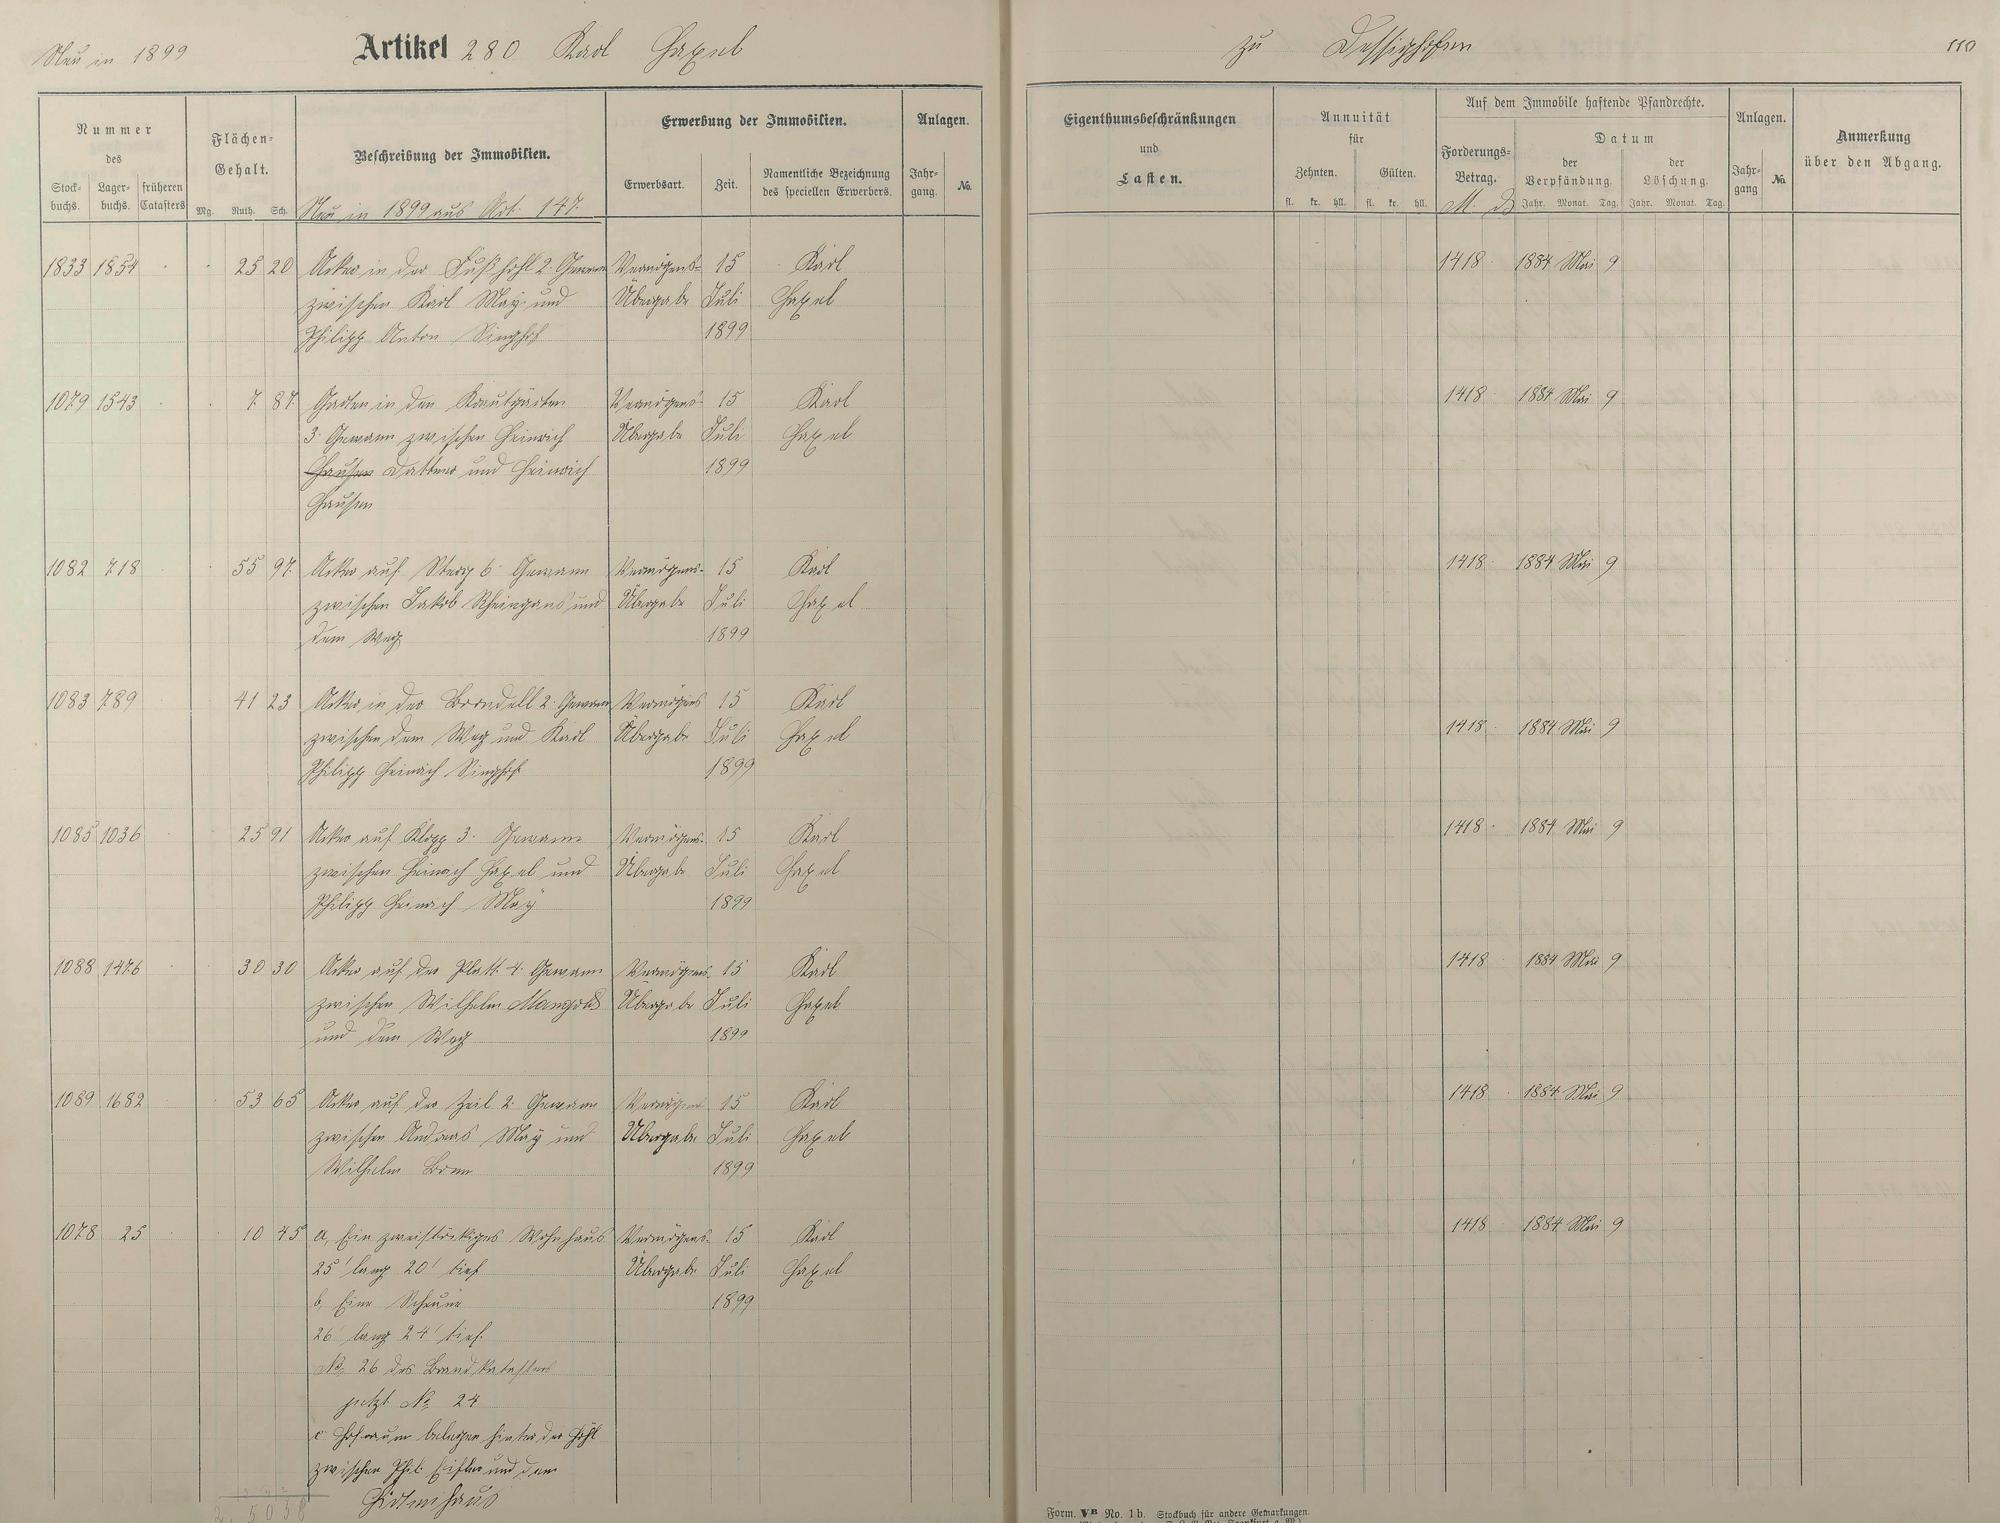 Neu in 1899
Artikel 280 Karl Haxel
zu Dessighofen
110
Nummer
des
Stock-
buchs.
Lager-
buchs.
früheren
Catasters
Flächen-
Gehalt.
Mg. Ruth. Sch.
Beschreibung der Immobilien.
Neu in 1899 aus Art. 147
Erwerbung der Immobilien.
Erwerbsart.
Zeit.
Namentliche Bezeichnung
des speciellen Erwerbers.
Anlagen.
Jahr-
gang.
No.
Eigenthumsbeschränkungen
und
Lasten.
Annuität
für
Zehnten. Gülten.
fl. kr. hll. fl. kr. hll.
Auf dem Immobile haftende Pfandrechte.
Forderungs-
Betrag.
M.
Datum
der
Verpfändung.
Jahr. Monat. Tag.
der
Löschung.
Jahr. Monat. Tag.
Anlagen.
Jahr-
gang
No.
Anmerkung
über den Abgang.
1833 1854 25 20 Acker in der 2. Gewann Vermögens- 15 Karl 1418 1884 Mai 9
zwischen Karl May und Übergabe Juli Haxel
Philipp Anton Singhof 1899
1079 1543 7 87 Garten in den Krautgärten Vermögens- 15 Karl 1418 1884 Mai 9
3. Gewann zwischen Heinrich Übergabe Juli Haxel
Hausen Dattner und Heinrich 1899
Hausen
1082 718 55 97 Acker auf Sterz 6 Gewann Vermögens- 15 Karl 1418 1884 Mai 9
zwischen Jakob Rheingans und Übergabe Juli Haxel
dem Weg 1899
1083 789 41 23 Acker in der Borndell 2. Gewann Vermögens 15 Karl
zwischen dem Weg und Karl Übergabe Juli Haxel 1418 1884 Mai 9
Philipp Heinrich Singhof 1899
1085 1036 25 91 Acker auf Klopp 3. Gewann Vermögens- 15 Karl 1418 1884 Mai 9
zwischen Heinrich Haxel und Übergabe Juli Haxel
Philipp Heinrich May 1899
1088 1476 30 30 Acker auf der Platt 4. Gewann Vermögens 15 Karl 1418 1884 Mai 9
zwischen Wilhelm Mangold Übergabe Juli Haxel
und dem Weg 1899
1089 1682 53 65 Acker auf der Zeil 2. Gewann Vermögens 15 Karl 1418 1884 Mai 9
zwischen Andreas May und Übergabe Juli Haxel
Wilhelm Born 1899
1078 25 10 45 a, Ein zweistöckiges Wohnhaus Vermögens- 15 Karl 1418 1884 Mai 9
25' lang 20' tief Übergabe Juli Haxel
b, Eine Scheune 1899
26' lang 24' tief.
No. 26 des Brandkatasters
jetzt No. 24
c. Hofraum belegen hinter der Höhl
zwischen Phil. und dem
Hirtenhaus
2. 50 38
Form. VB No. 1b. Stockbuch für andere Gemarkungen.